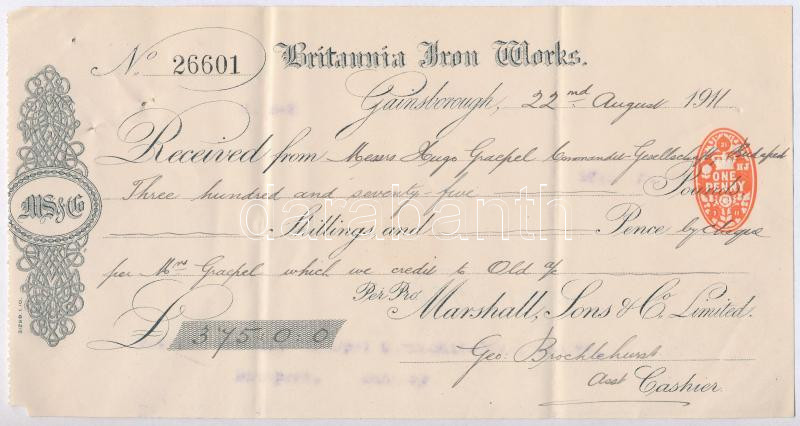 No 26601 Britannia Iron Works.
Gainsborough, 22nd August 1911
Received from Messrs Hugo Graepel Commandit-Gesellschaft Budapest
Three hundred and seventy-five Pounds
Shillings and Pence by cheque
per Mrs Graepel which we credit to Old a/c
Per Pro Marshall, Sons & Co. Limited.
£ 375.0.0
Geo: Brocklehurst
Asst Cashier
MS&Co
ONE PENNY
darabanth